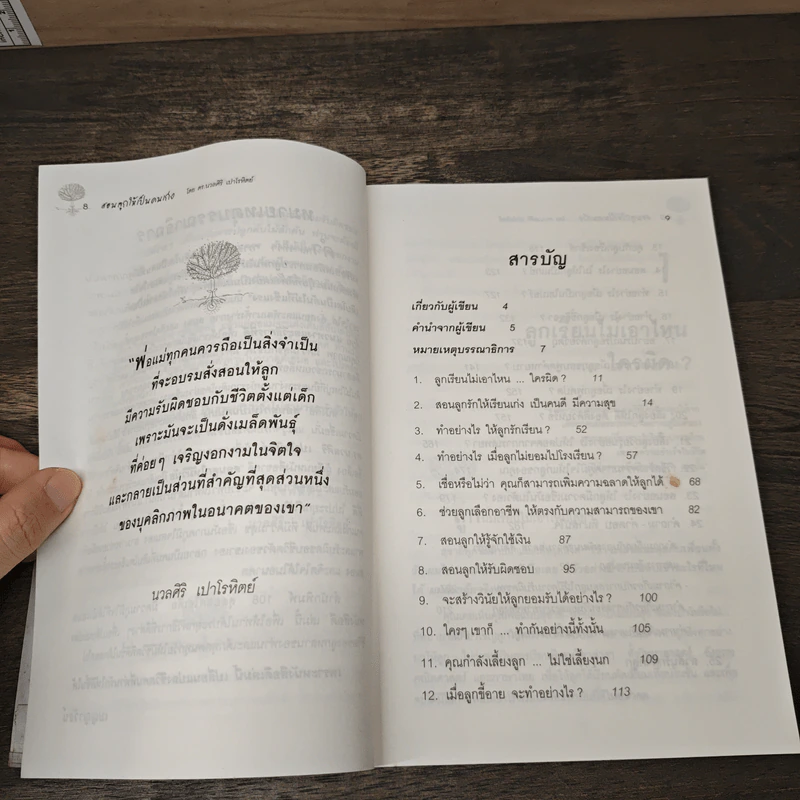 8 สอนลูกให้เป็นคนเก่ง โดย ดร.นวลศิริ เปาโรหิตย์
"พ่อแม่ทุกคนควรถือเป็นสิ่งจำเป็น
ที่จะอบรมสั่งสอนให้ลูก
มีความรับผิดชอบกับชีวิตตั้งแต่เด็ก
เพราะมันจะเป็นดั่งเมล็ดพันธุ์
ที่ค่อยๆ เจริญงอกงามในจิตใจ
และกลายเป็นส่วนที่สำคัญที่สุดส่วนหนึ่ง
ของบุคลิกภาพในอนาคตของเขา"
นวลศิริ เปาโรหิตย์
9
สารบัญ
เกี่ยวกับผู้เขียน 4
คำนำจากผู้เขียน 5
หมายเหตุบรรณาธิการ 7
1. ลูกเรียนไม่เอาไหน ... ใครผิด ? 11
2. สอนลูกรักให้เรียนเก่ง เป็นคนดี มีความสุข 14
3. ทำอย่างไร ให้ลูกรักเรียน ? 52
4. ทำอย่างไร เมื่อลูกไม่ยอมไปโรงเรียน ? 57
5. เชื่อหรือไม่ว่า คุณก็สามารถเพิ่มความฉลาดให้ลูกได้ 68
6. ช่วยลูกเลือกอาชีพ ให้ตรงกับความสามารถของเขา 82
7. สอนลูกให้รู้จักใช้เงิน 87
8. สอนลูกให้รับผิดชอบ 95
9. จะสร้างวินัยให้ลูกยอมรับได้อย่างไร ? 100
10. ใครๆ เขาก็ ... ทำกันอย่างนี้ทั้งนั้น 105
11. คุณกำลังเลี้ยงลูก ... ไม่ใช่เลี้ยงนก 109
12. เมื่อลูกขี้อาย จะทำอย่างไร ? 113